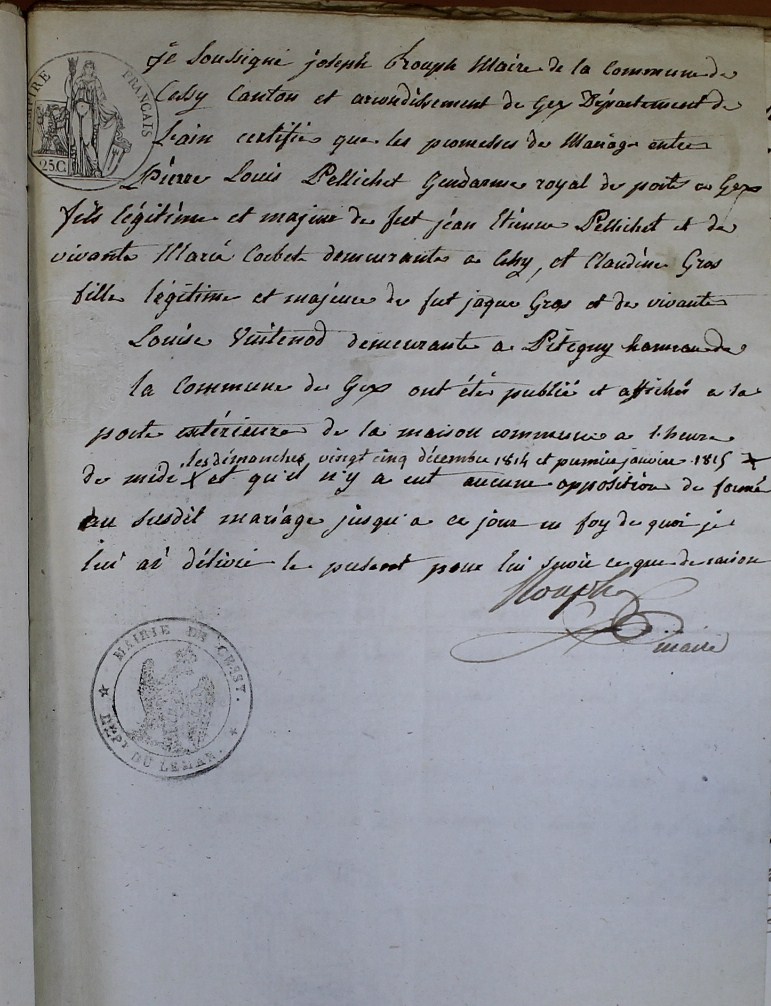 je Soussigné joseph Rouph Maire de la Commune de
Cessy Canton et arondissement de Gex Département de
L'ain certifie que les promesses de Mariage entre
Pierre Louis Pellichet Gendarme royal de poste a Gex
fils légitime et majeur de feut jean Etienne Pellichet et de
vivante Marie Corbet demeurante a Cessy, et Claudine Gros
fille légitime et majeure de feut jaque Gros et de vivante
Louise Vuitenod demeurante a Pitegny hameau de
la Commune de Gex ont étés publié et affichés a la
porte extérieure de la maison commune a l'heure
les dimanches vingt cinq décembre 1814 et premier janvier 1815 X
de midi X et qu'il n'y a eut aucune opposition de formé
au susdit mariage jusqu'a ce jour en foy de quoi je
lui ai délivré le présent pour lui servir ce que de raison
Rouph
maire
FRANÇAIS
25C.
MAIRIE DE CESSY.
DÉPT. DU LÉMAN.